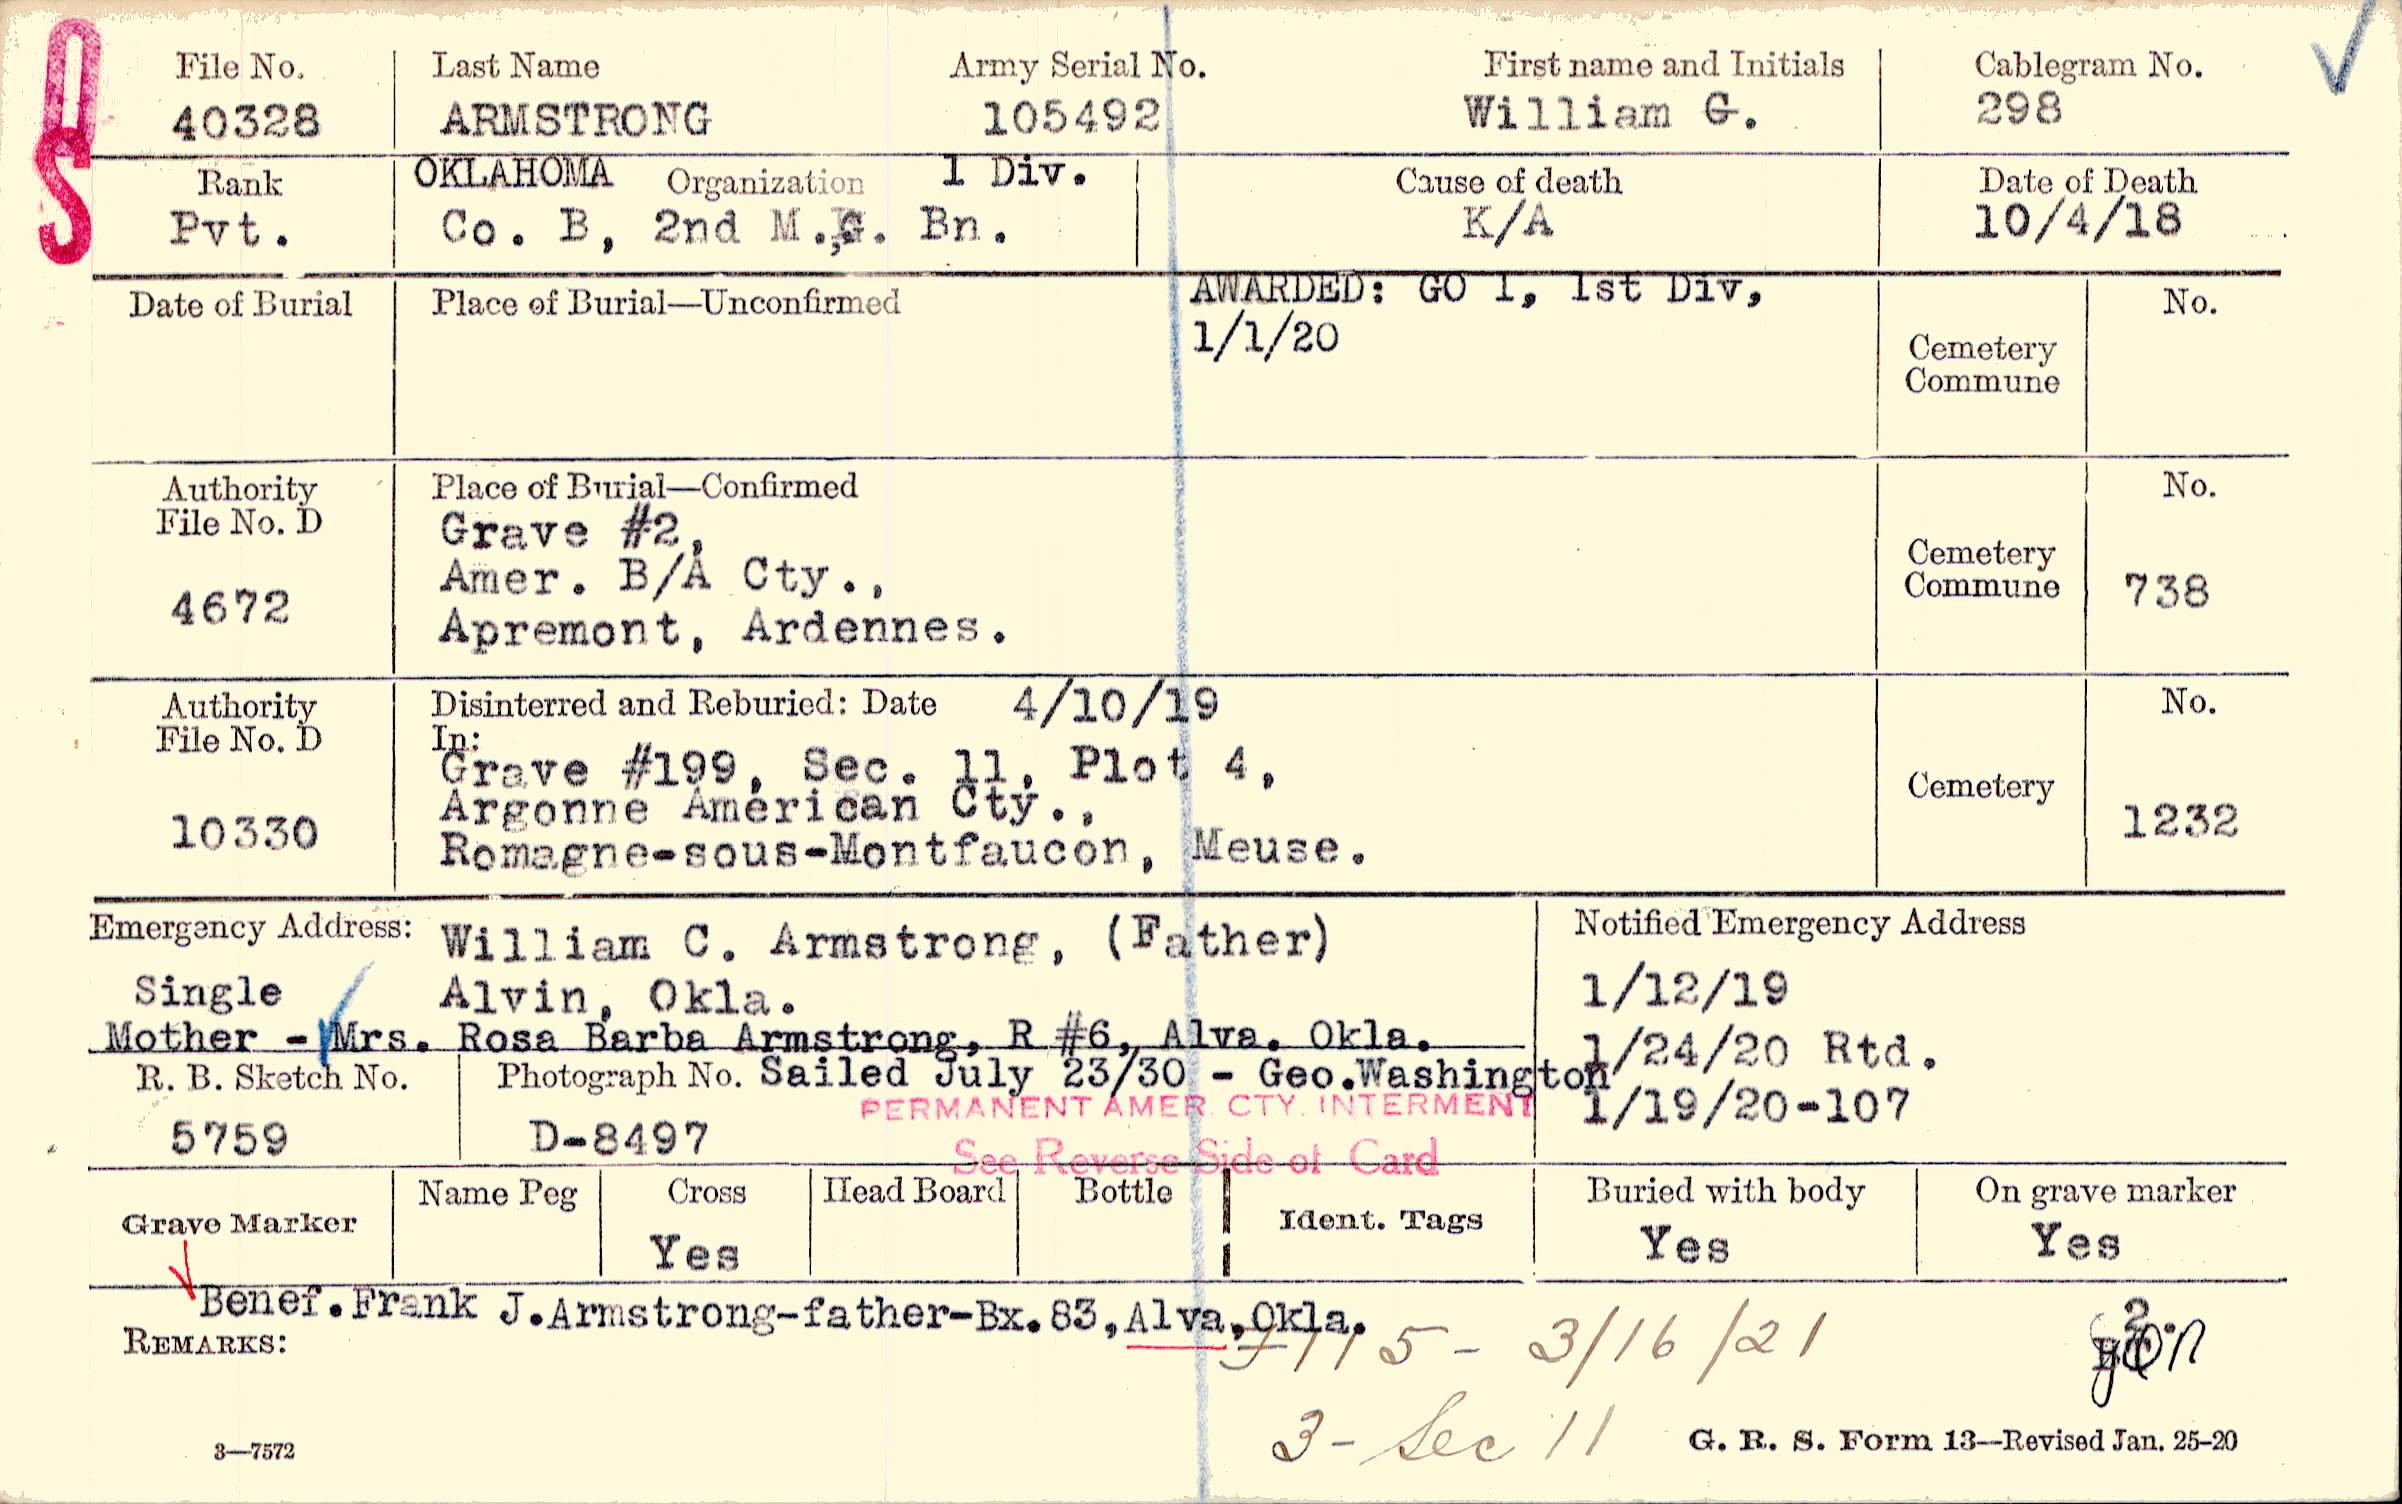 OS
File No.
Last Name
Army Serial No.
First name and Initials
Cablegram No.
40328
ARMSTRONG
105492
William G.
298
Rank
OKLAHOMA
Organization
1 Div.
Cause of death
Date of Death
Pvt.
Co. B, 2nd M.,G. Bn.
K/A
10/4/18
Date of Burial
Place of Burial—Unconfirmed
AWARDED: GO 1, 1st Div,
1/1/20
Cemetery
Commune
No.
Authority
File No. D
4672
Place of Burial—Confirmed
Grave #2,
Amer. B/A Cty.,
Apremont, Ardennes.
Cemetery
Commune
No.
738
Authority
File No. D
10330
Disinterred and Reburied: Date 4/10/19
In:
Grave #199, Sec. 11, Plot 4,
Argonne American Cty.,
Romagne-sous-Montfaucon, Meuse.
Cemetery
No.
1232
Emergency Address:
William C. Armstrong, (Father)
Single
Alvin, Okla.
Mother - Mrs. Rosa Barba Armstrong, R #6, Alva. Okla.
Notified Emergency Address
1/12/19
1/24/20 Rtd.
1/19/20-107
R. B. Sketch No.
5759
Photograph No. Sailed July 23/30 - Geo.Washington
PERMANENT AMER. CTY. INTERMENT
D-8497
See Reverse Side of Card
Grave Marker
Name Peg
Cross
Yes
Head Board
Bottle
Ident. Tags
Buried with body
Yes
On grave marker
Yes
Benef.Frank J.Armstrong-father-Bx.83,Alva,Okla.
REMARKS:
5 - 3/16/21
2
3 - Sec 11
3—7572
G. R. S. Form 13—Revised Jan. 25-20